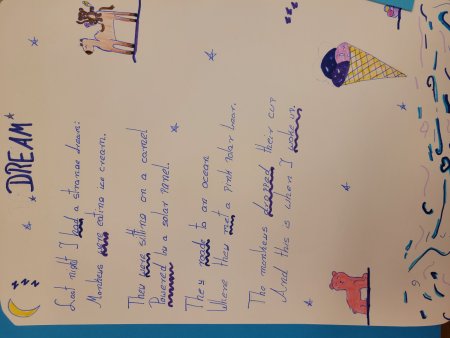 z z z
DREAM
Last night I had a strange dream:
Monkeys were eating ice cream.
They were sitting on a camel
Powered by a solar panel.
They to an ocean
Where they met a pink polar bear.
The monkeys dropped their cup
And this is when I woke up.